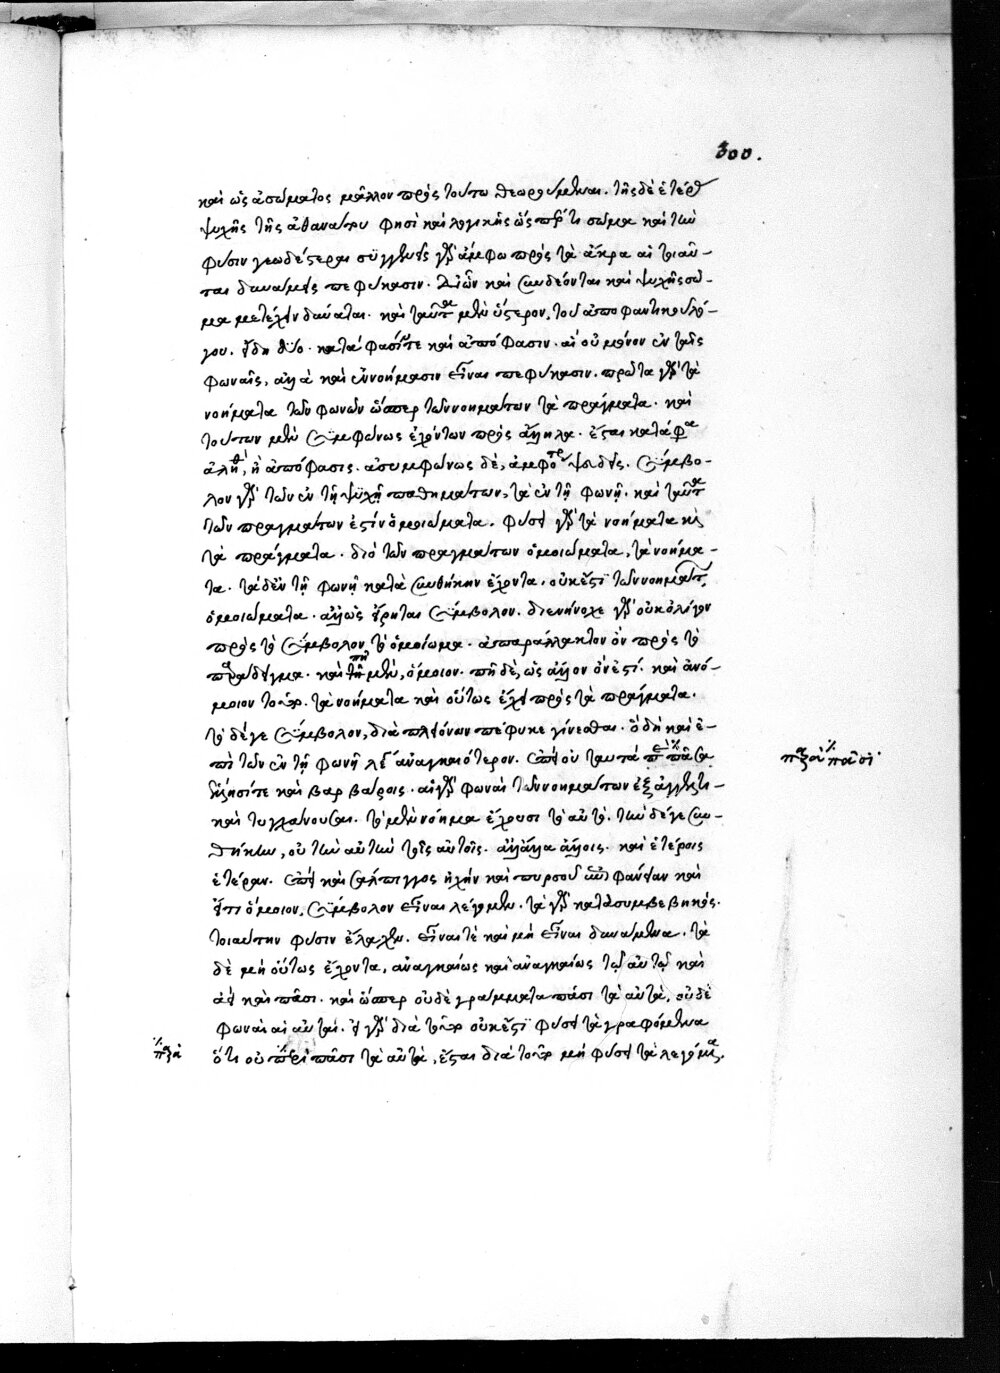 300.
καὶ ὡς ἀσώματος μᾶλλον πρὸς τούτω θεωρουμέναι. τῆς δὲ ἑτέρας
ψυχῆς τῆς ἀθανάτου φησὶ καὶ λογικῆς ὡς πρός τι σῶμα καὶ τὴν
φύσιν γεωδέστεραι συγγενεῖς γὰρ ἄμφω πρὸς τὰ ἄκρα αἱ τοιαῦ-
ται δυνάμεις πεφύκασιν. δι' ὧν καὶ συνδέονται καὶ ψυχῆς σῶ-
μα μετέχειν δύναται. καὶ ταῦτα μὲν ὕστερον, τοῦ ἀποφαντικοῦ λό-
γου. εἴδη δύο. κατάφασίς τε καὶ ἀπόφασιν. αἳ οὐ μόνον ἐν ταῖς
φωναῖς, ἀλλὰ καὶ ἐν νοήμασιν εἶναι πεφύκασιν. πρῶτα γὰρ τὰ
νοήματα τῶν φωνῶν ὥσπερ τῶν νοημάτων τὰ πράγματα. καὶ
τούτων μὲν συμφώνως ἐχόντων πρὸς ἄλληλα. ἔσται κατάφα
ἀληθ, ἢ ἀπόφασις. ἀσυμφώνως δὲ, ἀμφότρ ψευδεῖς. σύμβο-
λον γὰρ τῶν ἐν τῇ ψυχῇ παθημάτων, τὰ ἐν τῇ φωνῇ. καὶ ταῦτα
τῶν πραγμάτων ἐστὶν ὁμοιώματα. φύσει γὰρ τὰ νοήματα καὶ
τὰ πράγματα. διὸ τῶν πραγμάτων ὁμοιώματα, τὰ νοήμα-
τα. τὰ δ' ἐν τῇ φωνῇ κατὰ συνθήκην ἔχοντα, οὐκέτι τῶν νοημάτων
ὁμοιώματα. ἀλλ' ὡς εἴρηται σύμβολον. διενήνοχε γὰρ οὐκ ὀλίγον
πρὸς τὸ σύμβολον τὸ ὁμοίωμα. ἀπαράλλακτον ὂν πρὸς τὸ
παράδειγμα. καὶ πῆ μὲν, ὅμοιον. πῆ δὲ, ὡς ἄλλον ὄν ἐστι. καὶ ἀνό-
μοιον τοίνυν. τὰ νοήματα καὶ οὕτως ἔχει πρὸς τὰ πράγματα.
τὸ δέ γε σύμβολον, διὰ πλειόνων πέφυκε γίνεσθαι. ὃ δὴ καὶ ἐ-
πὶ τῶν ἐν τῇ φωνῇ λέγ ἀναγκαιότερον. ἐπεὶ οὐ ταυτά πᾶσα
ἕλλησί τε καὶ βαρβάροις. αἱ γὰρ φωναὶ τῶν νοημάτων ἐξαγγελτι-
καὶ τυγχάνουσαι. τὸ μὲν νόημα ἔχουσι τὸ αὐτό. τὴν δέ γε συν-
θήκην, οὐ τὴν αὐτὴν τοῖς αὐτοῖς. ἀλλ' ἄλλα ἄλλοις. καὶ ἑτέροις
ἑτέραν. ἐπεὶ καὶ σάλπιγγος ἠχὴν καὶ πυρσοῦ φανεῖσαν καὶ
εἴ τι ὅμοιον, σύμβολον εἶναι λέγομεν. τὰ γὰρ κατὰ συμβεβηκός.
τοιαύτην φύσιν ἔλαχεν. εἶναί τε καὶ μὴ εἶναι δυνάμενα. τὰ
δὲ μὴ οὕτως ἔχοντα, ἀναγκαίως καὶ ἀναγκαίως τῷ αὐτῷ καὶ
ἀεὶ καὶ πᾶσι. καὶ ὥσπερ οὐδὲ γράμματα πᾶσι τὰ αὐτὰ, οὐδὲ
φωναὶ αἱ αὐταί. εἰ γὰρ διὰ τοῦτο οὐκέτι φύσει τὰ γραφόμενα
ὅτι οὐ περὶ πᾶσι τὰ αὐτὰ, ἔσται διὰ τοῦτο μὴ φύσει τὰ λεγόμενα.
παρὰ πᾶσι
παρὰ